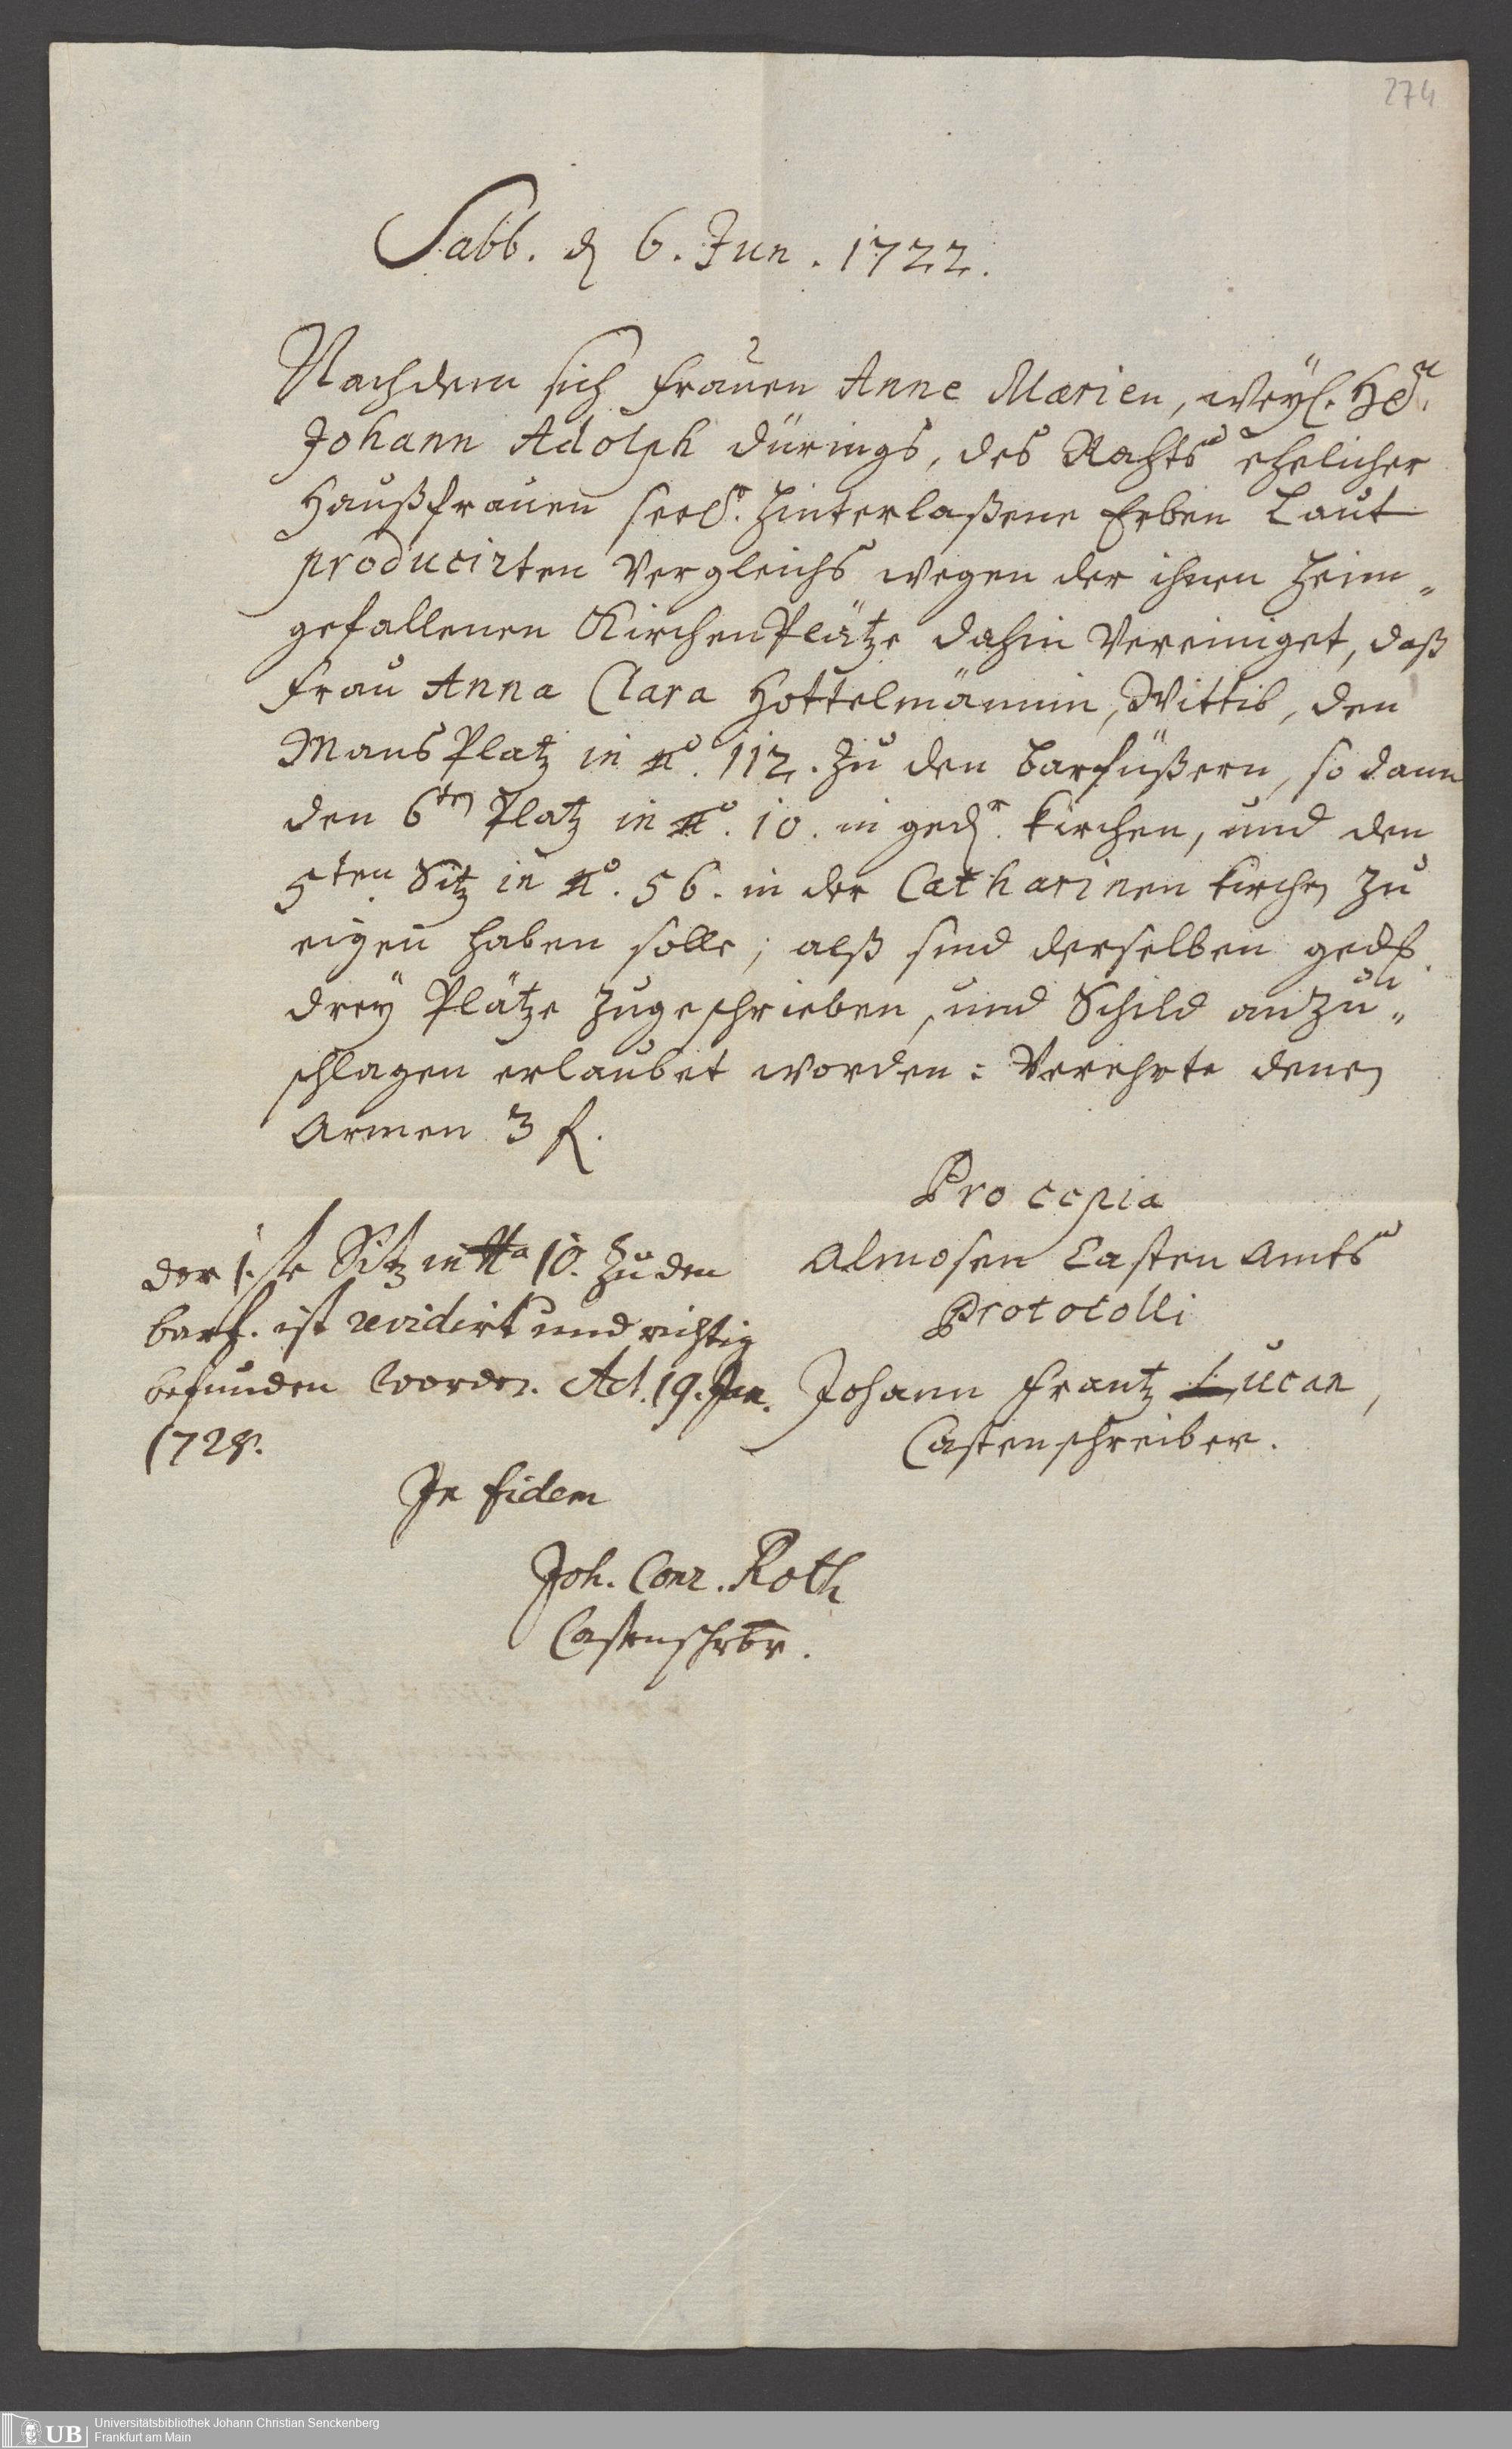 274
Sabb. d 6. Jun. 1722.
Nachdem sich Frauen Anne Marien, weyl. H.
Johann Adolph Dürings, des Rahts ehelicher
Haußfrauen seel. hinterlaßene Erben Laut
producirten Vergleichs wegen der ihnen heim-
gefallenen KirchenPlätze dahin Vereiniget, daß
Frau Anna Clara Hottelmännin, Wittib, den
MansPlatz in No. 112. zu den Barfüßern, so dann
den 6ten Platz in No. 10. in gedr. Kirchen, und den
5ten Sitz in No. 56. in der Catharinen Kirchen zu
eigen haben solle; alß sind derselben
drey Plätze zugeschrieben, und Schild anzu-
schlagen erlaubet worden: Verehrte denen
Armen 3 f.
Pro copia
Almosen Casten Amts
Protocolli
Johann Frantz Lucan,
Castenschreiber.
der 1.ste Sitz in 10. Zu den
Barf. ist revidirt und richtig
befunden worden. Act. 19. Jan.
1728.
In fidem
Joh. Conr. Roth
Castenschrbr.
UB
Universitätsbibliothek Johann Christian Senckenberg
Frankfurt am Main